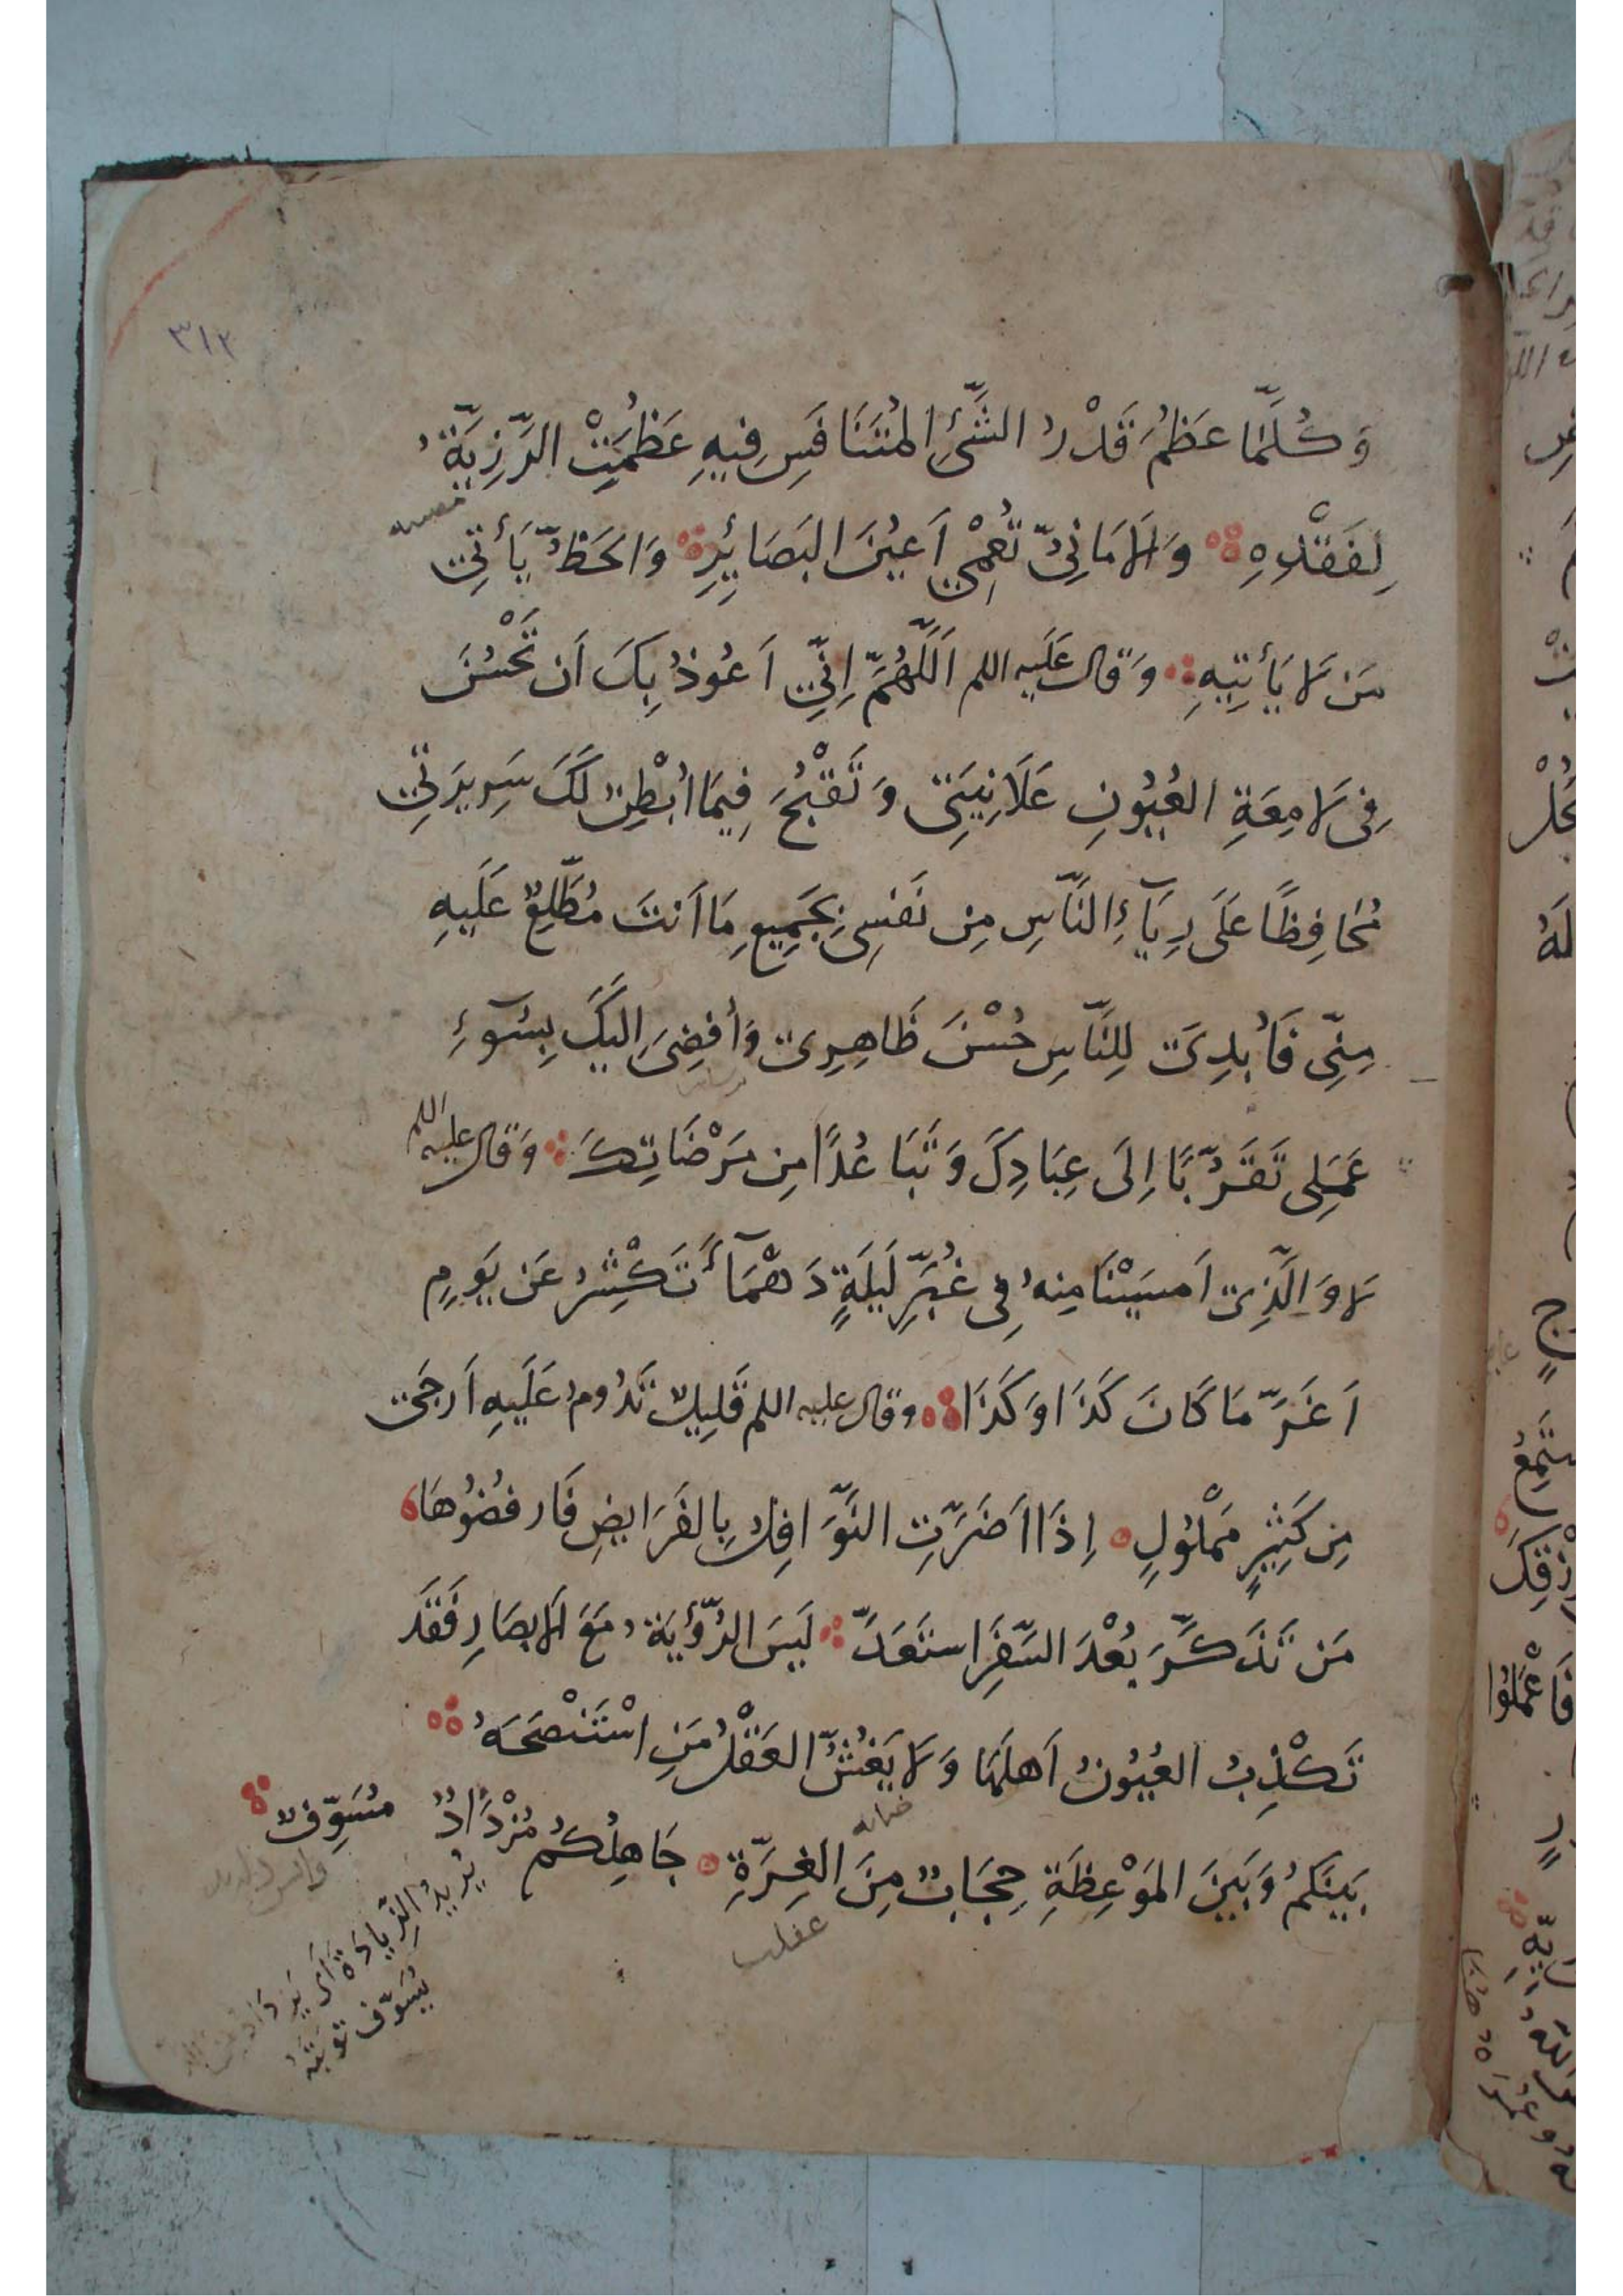 ٣١٢
وَكُلَّمَا عَظُمَ قَدْرُ الشَّيْءِ المُتَنَافَسِ فِيهِ عَظُمَتْ الرَّزِيَّةُ
لِفَقْدِهِ وَالاَمَانِيُّ تُعْمِي اَعيُنَ البَصَائِرِ وَالحَظُّ يَأتِي
مَن لَا يَأتِيهِ وَقال عَلَيه اللم اَللَّهُمَّ اِنِّي اَعُوذُ بِكَ اَن تَحْسُنَ
فِي لَامِعَةِ العُيُونِ عَلَانِيَتِي وَتَقْبُحَ فِيمَا اُبْطِنُ لَكَ سَرِيرَتِي
مُحَافِظًا عَلَى رِيَآءِ النَّاسِ مِن نَفسِي بِجَمِيعِ مَا اَنتَ مُطَّلِعٌ عَلَيهِ
مِنِّي فَاُبدِيَ لِلنَّاسِ حُسْنَ ظَاهِرِي وَاُفضِيَ اِلَيكَ بِسُوٓءِ
عَمَلِي تَقَرُّبًا اِلَى عِبَادِكَ وَتَبَاعُدًا مِن مَرْضَاتِكَ وَقال عليه اللم
لَا وَالَّذِي اَمسَيْنَا مِنهُ فِي غُبَّرِ لَيلَةٍ دَهْمَآءَ تَكْشِرُ عَن يَومٍ
اَغَرَّ مَا كَانَ كَذَا وَكَذَا وقال عليه اللم قَلِيلٌ تَدُومُ عَلَيهِ اَرجَى
مِن كَثِيرٍ مَمْلُولٍ اِذَا اَضَرَّتِ النَّوَافِلُ بِالفَرَايضِ فَارفُضُوهَا
مَن تَذَكَّرَ بُعْدَ السَّفَرِ استَعَدَّ لَيسَ الرُّؤيَةُ مَعَ الاَبصَارِ فَقَد
تَكْذِبُ العُيُونُ اَهلَهَا وَلَا يَغُشُّ العَقْلُ مَنِ اسْتَنْصَحَهُ
بَينَكُم وَبَينَ المَوْعِظَةِ حِجَابٌ مِنَ الغِرَّةِ جَاهِلُكُم مُزْدَادٌ مُسَوِّفٌ
يُرِيدُ الزِّيَادَةَ اَى يَزدَادُ
يُسَوِّف تَوبَتَهُ